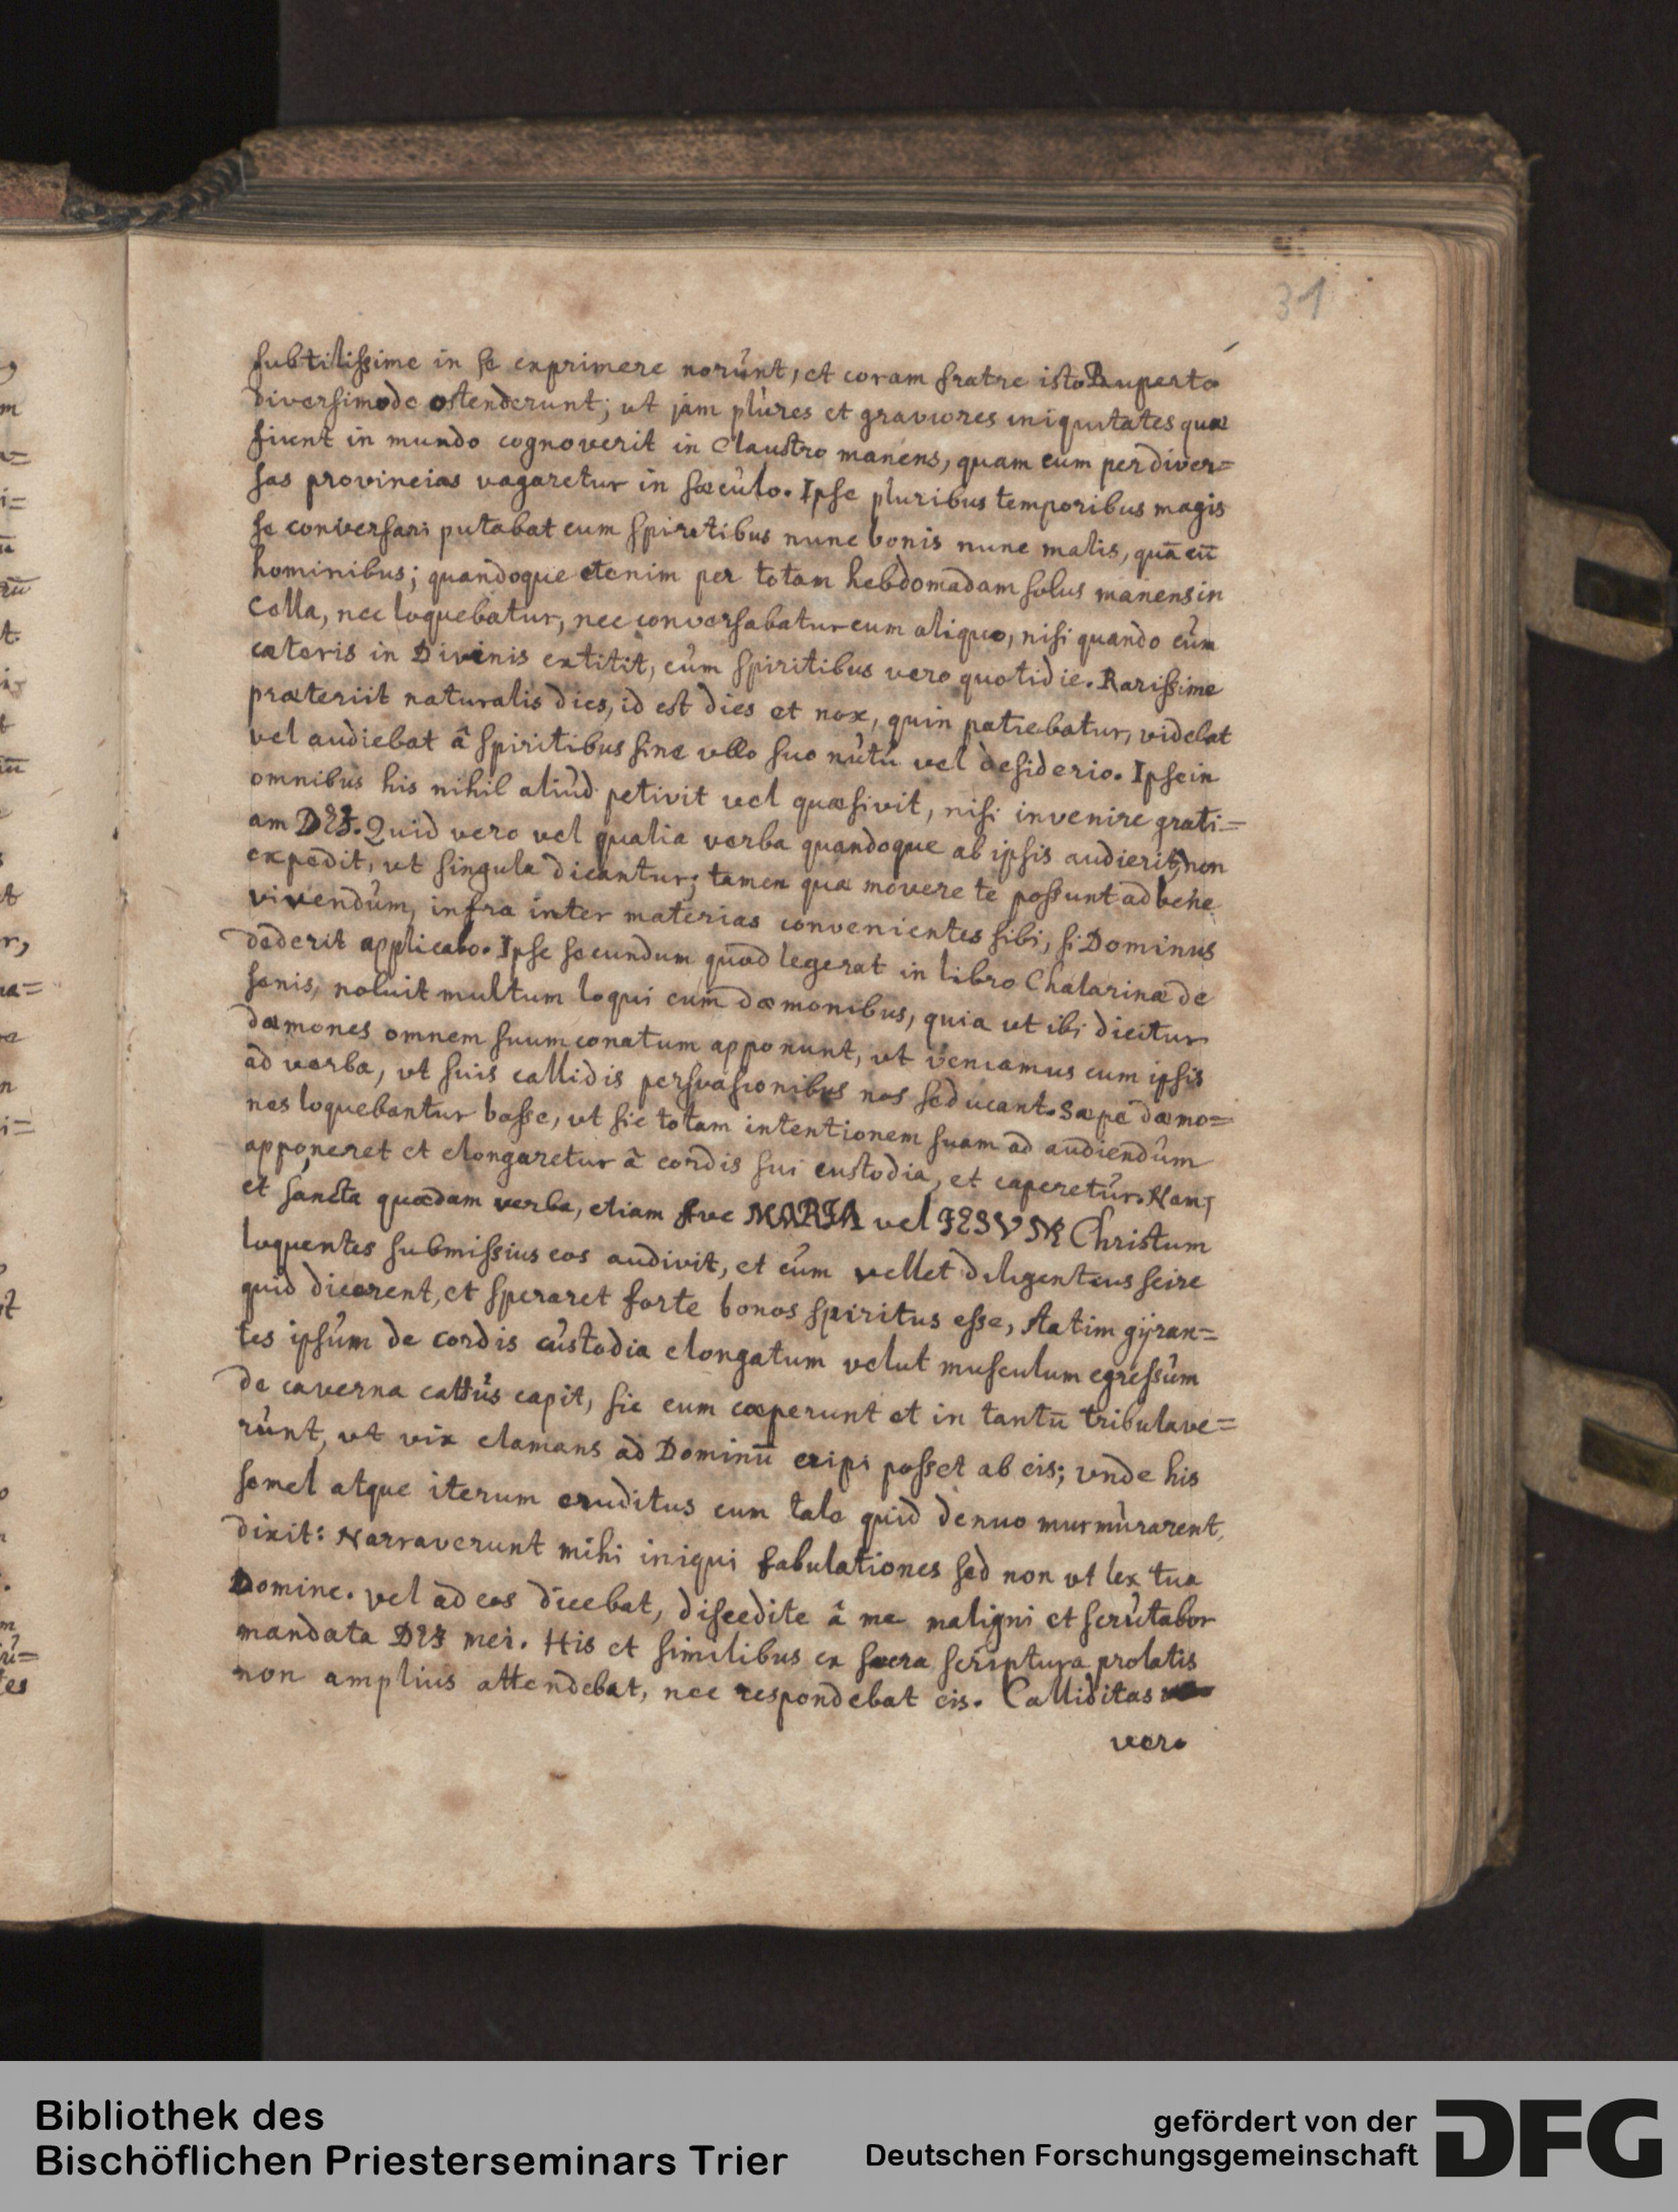 31
subtilissime in se exprimere norùnt, et coram fratre isto Ruperto
diversimode ostenderunt; ut jam plùres et graviores iniquitates quæ
fiunt in mundo cognoverit in Claustro manens, quam cum per diver=
sas provincias vagaretur in sæcùlo. Ipse pluribus temporibus magis
se conversari putabat cum spiritibus nunc bonis nunc malis, quā cū
hominibus; quandoque etenim per totam hebdomadam solus manens in
Cella, nec loquebatur, nec conversabatur cum aliquo, nisi quando cùm
cæteris in Divinis extitit, cùm spiritibus vero quotidie. Rarissime
præteriit naturalis dies, id est dies et nox, quin patiebatur, videbat
vel audiebat â spiritibus sine ullo suo nùtù vel desiderio. Ipse in
omnibus his nihil aliùd petivit vel quæsivit, nisi invenire grati=
am DEI. Quid vero vel qualia verba quandoque ab ipsis audierit, non
expedit, ut singula dicantur; tamen quæ movere te possunt ad bene
vivendùm, infra inter materias convenientes sibi, si Dominus
dederit applicabo. Ipse secundum quod legerat in libro Chalarinæ de
senis, noluit multum loqui cum dæmonibus, quia ut ibi dicitur
dæmones omnem suum conatum apponunt, ut veniamus cum ipsis
ad verba, ut suis callidis persuasionibus nos seducant. Sæpe dæmo=
nes loquebantur basse, ut sic totam intentionem suam ad audiendùm
apponeret et elongaretur â cordis sui custodia, et caperetùr. Nam,
et sancta quædam verba, etiam Ave MARIA vel IESVM Christum
loquentes submissius eos audivit, et cùm vellet diligentius scire
quid dicerent, et speraret forte bonos spiritus esse, statim gÿran=
tes ipsùm de cordis cùstodia elongatum velut musculum egressùm
de caverna cattùs capit, sic eum cæperunt et in tantū tribulave=
rùnt, ut vix clamans ad Dominū eripi posset ab eis; unde his
semel atque iterum eruditus cum tale quid denuo murmùrarent,
dixit: Narraverunt mihi iniqui fabulationes sed non ut lex tua
Domine. vel ad eos dicebat, discedite â me maligni et scrùtabor
mandata DEI mei. His et similibus ex sacra scriptura prolatis
non amplius attendebat, nec respondebat eis. Calliditas
vero
Bibliothek des
Bischöflichen Priesterseminars Trier
gefördert von der
Deutschen Forschungsgemeinschaft
DFG